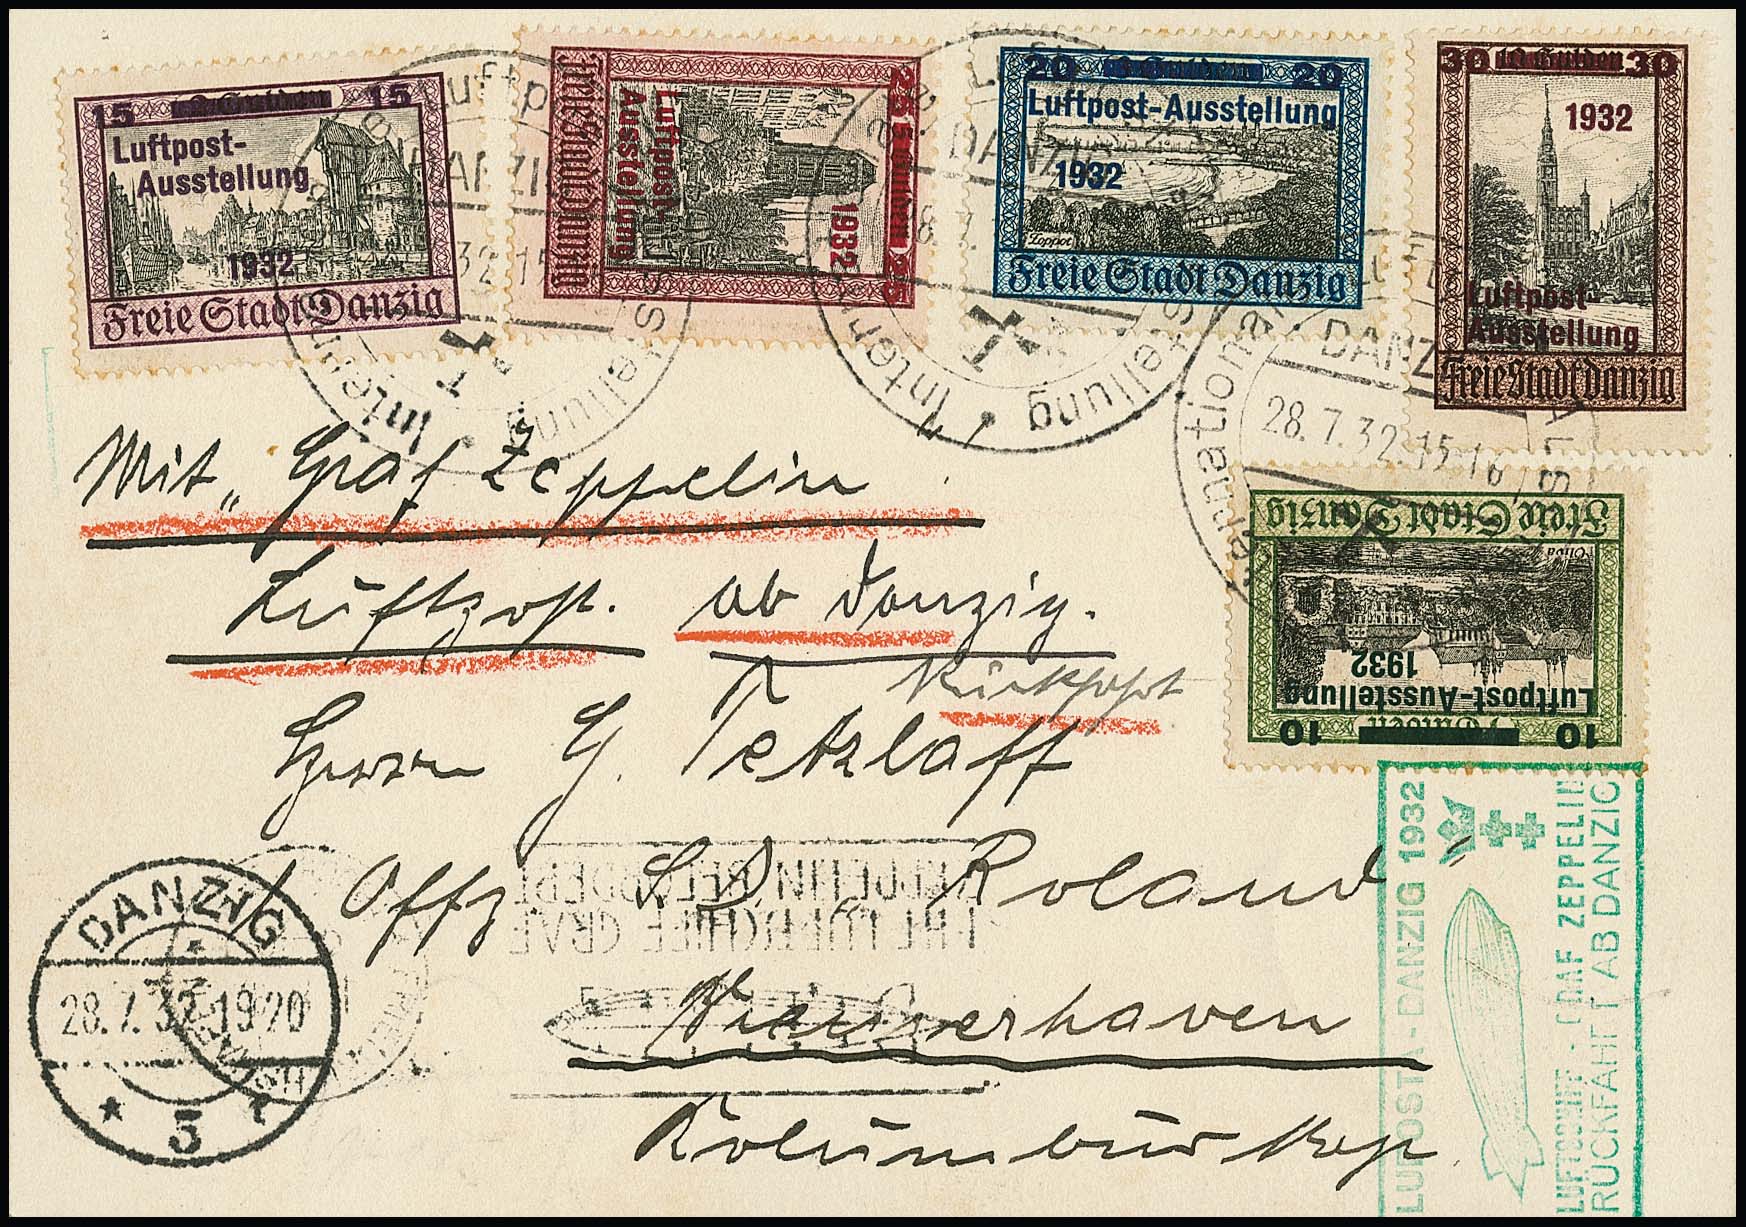 15 2 Gulden 15
Luftpost-
Ausstellung
1932
Freie Stadt Danzig
25 5 Gulden 25
Luftpost-
Ausstellung
1932
Freie Stadt Danzig
20 20
Luftpost-Ausstellung
1932
Zoppot
Freie Stadt Danzig
30 10 Gulden 30
1932
Luftpost
Ausstellung
Freie Stadt Danzig
Freie Stadt Danzig
Oliva
1932
Luftpost-Ausstellung
10 10
DANZIG
28.7.32.15-16
Mit "Graf Zeppelin
Luftpost. ab Danzig.
Rückfahrt
Herrn G. Tetzlaff
Offz S.D. "Roland"
Bremerhaven
Kolumbuskaje
DANZIG
28.7.32 19-20
* 5 r
LUPOSTA-DANZIG 1932
LUFTSCHIFF-GRAF ZEPPELIN
RÜCKFAHRT AB DANZIG